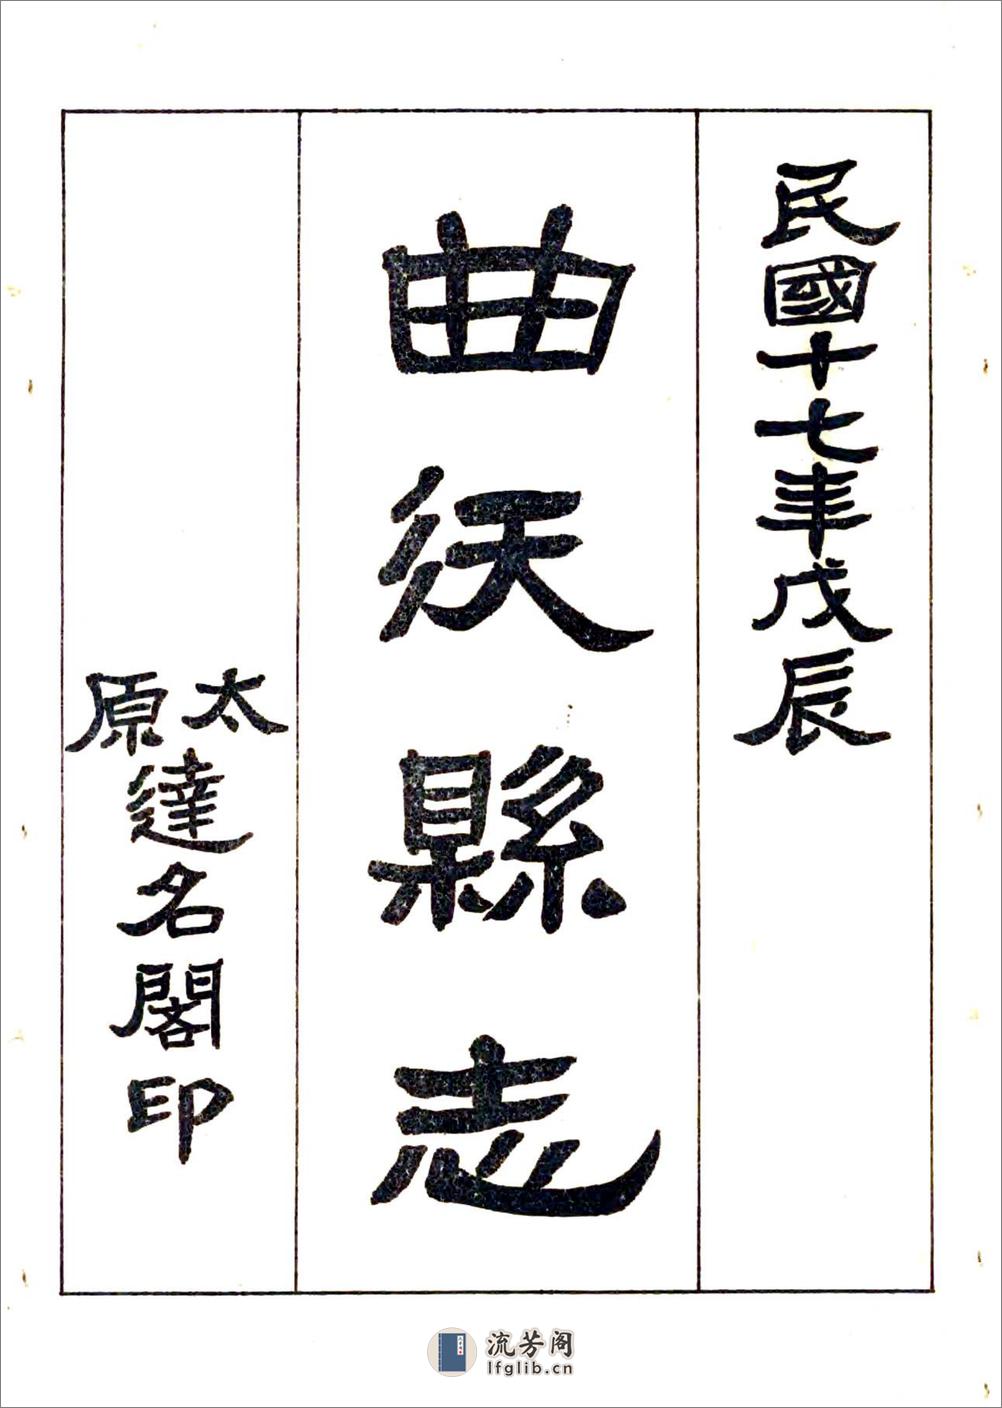 民國十七年戊辰
曲沃縣志
太原達名閣印
流芳阁
lfglib.cn